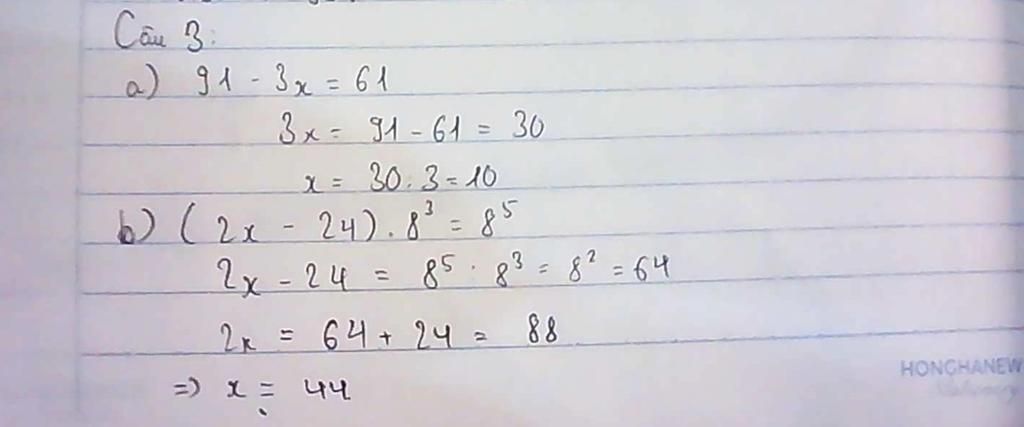 Câu 3:
a) 91 - 3x = 61
3x = 91 - 61 = 30
x = 30 : 3 = 10
b) (2x - 24) . 8³ = 8⁵
2x - 24 = 8⁵ : 8³ = 8² = 64
2x = 64 + 24 = 88
=> x = 44
HONGHANEW
Stationery